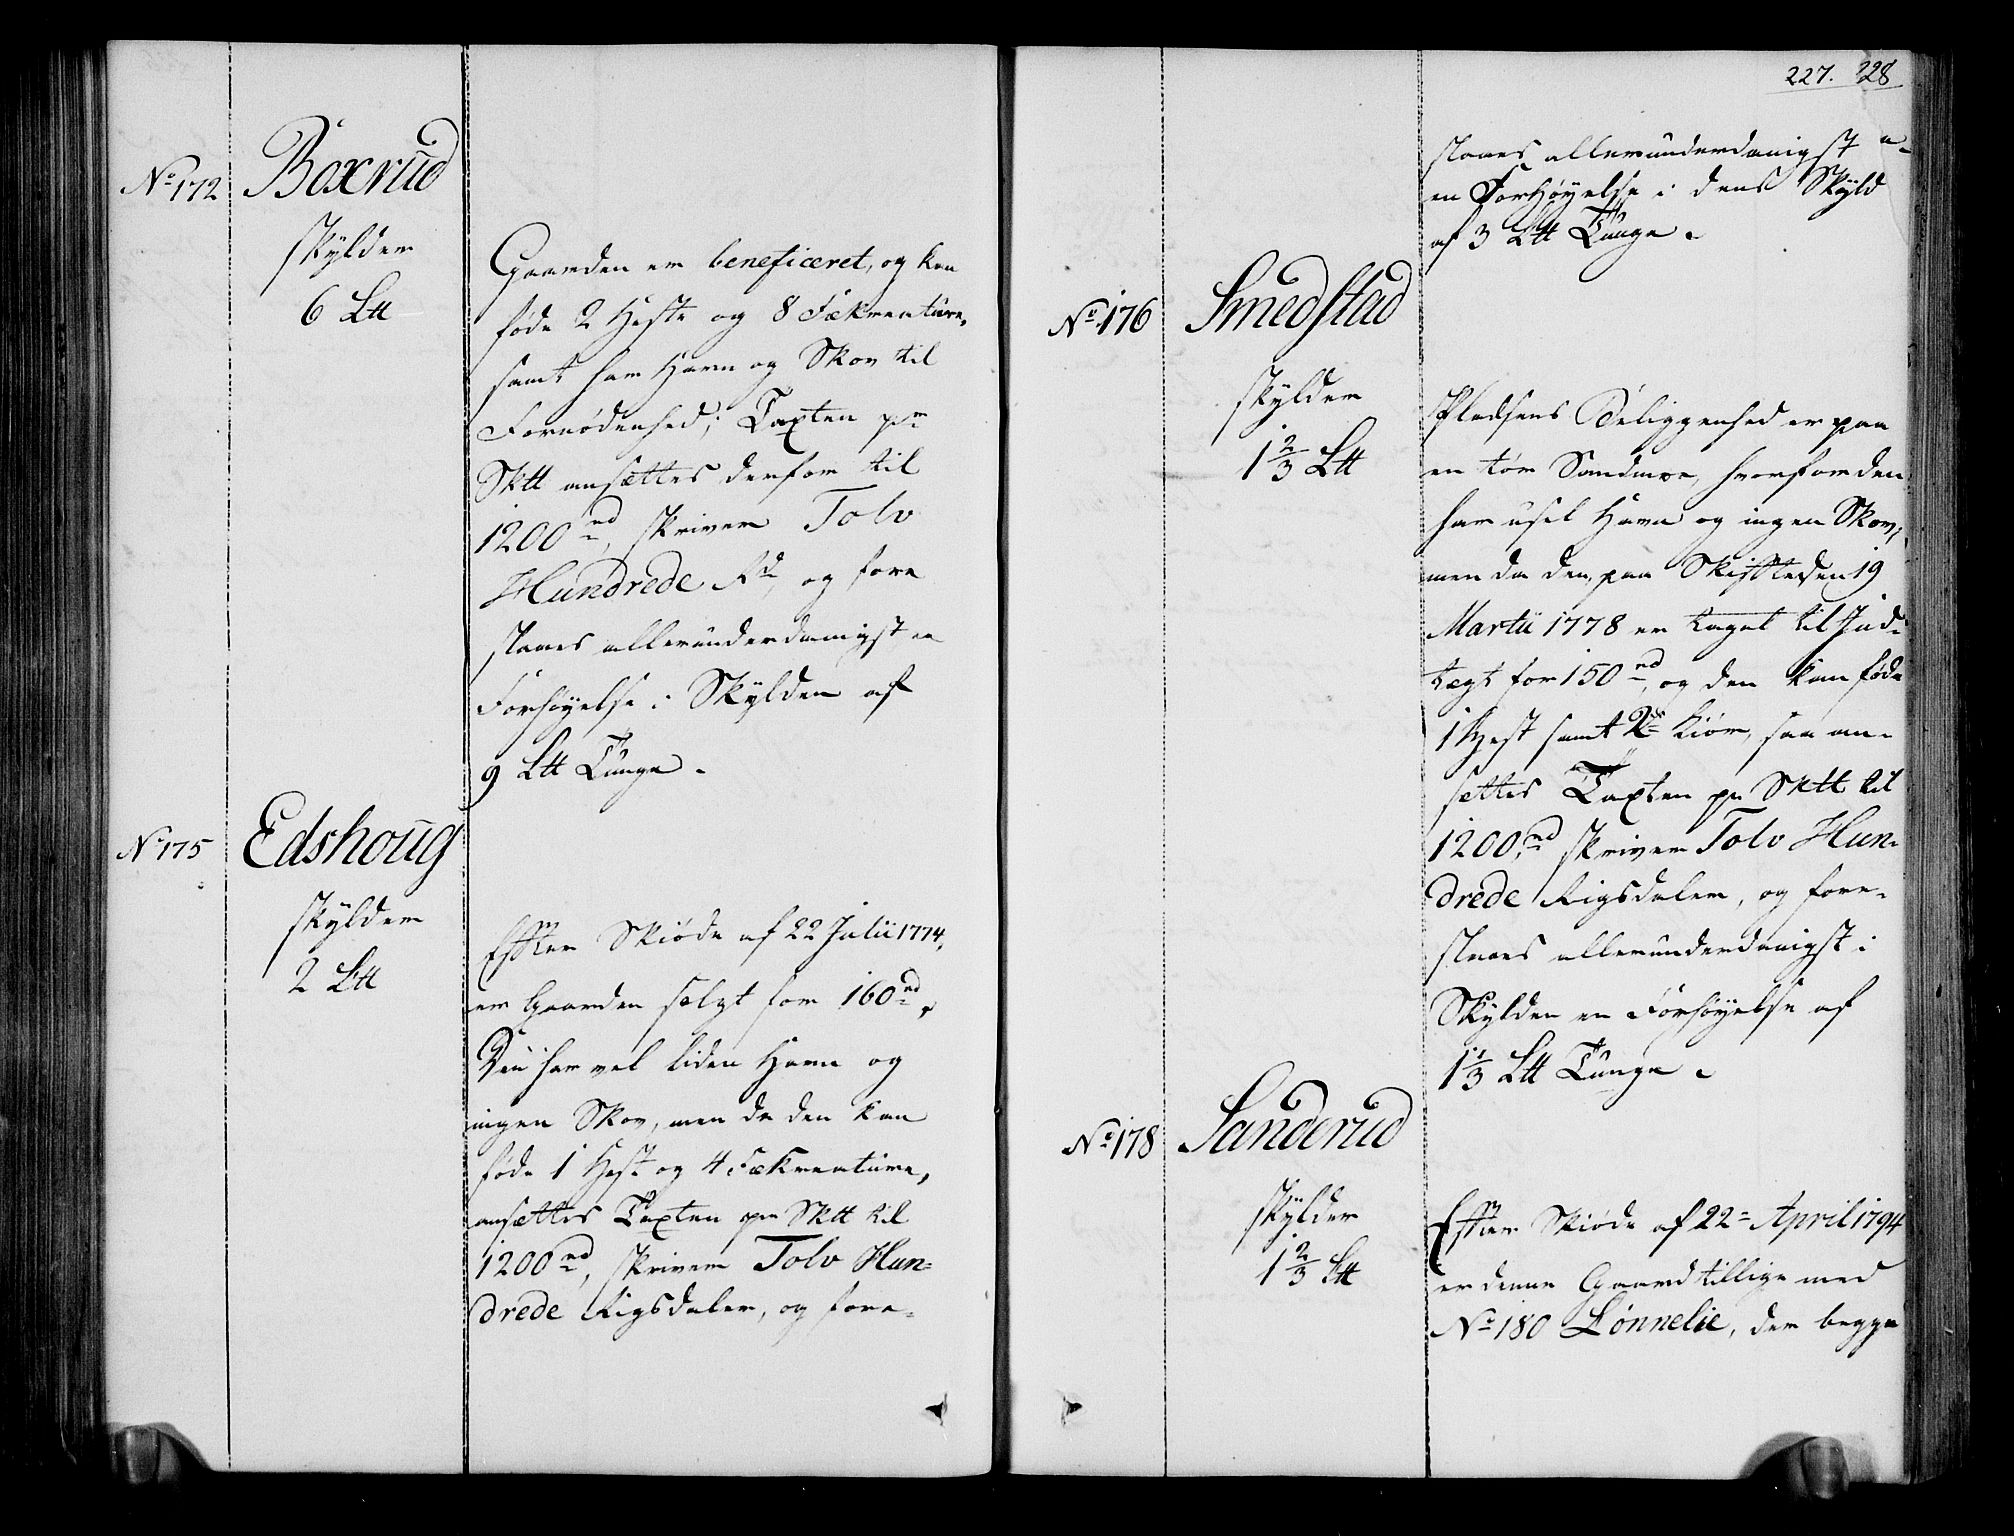 No 172
Boxrud
skylder
6 Ltt
Gaarden er beneficeret, og kan
føde 2 Heste og 8 Fækreature,
samt har Havn og Skov til
Fornødenhed; Taxten pr
Sktt ansættes derfor til
1200 rd, skriver Tolv
Hundrede Rd, og fore
slaaes allerunderdanigst en
Forhøyelse i Skylden af
9 Ltt Tunge.
No 175
Edshoug
skylder
2 Ltt
Efter Skiøde af 22 Julii 1774,
er Gaarden solgt for 160 rd,
Den har vel liden Havn og
ingen Skov, men da den kan
føde 1 Hest og 4 Fækreature,
ansættes Taxten pr Sktt til
1200 rd, skriver Tolv Hun=
drede Rigsdaler, og fore-
227. 228
slaaes allerunderdanigst
en Forhøyelse i dens Skyld
af 3 Ltt Tunge.
No 176
Smedstad
skylder
1 2/3 Ltt
Pladsens Beliggenhed er paa
en tør Sandmoe, hvorfor den
har usel Havn og ingen Skov,
men da den, paa Skiftet den 19
Martii 1778 er taget til Ind-
tægt for 150 rd, og den kan føde
1 Hest samt 2de Kiør, saa an-
sættes Taxten pr Sktt til
1200 rd skriver Tolv Hun-
drede Rigsdaler, og fore-
slaaes allerunderdanigst i
Skylden en Forhøyelse af
1 1/3 Ltt Tunge.
No 178
Sanderud
skylder
1 2/3 Ltt
Efter Skiøde af 22= April 1794
er denne Gaard tillige med
No 180 Lønnelie, der begge